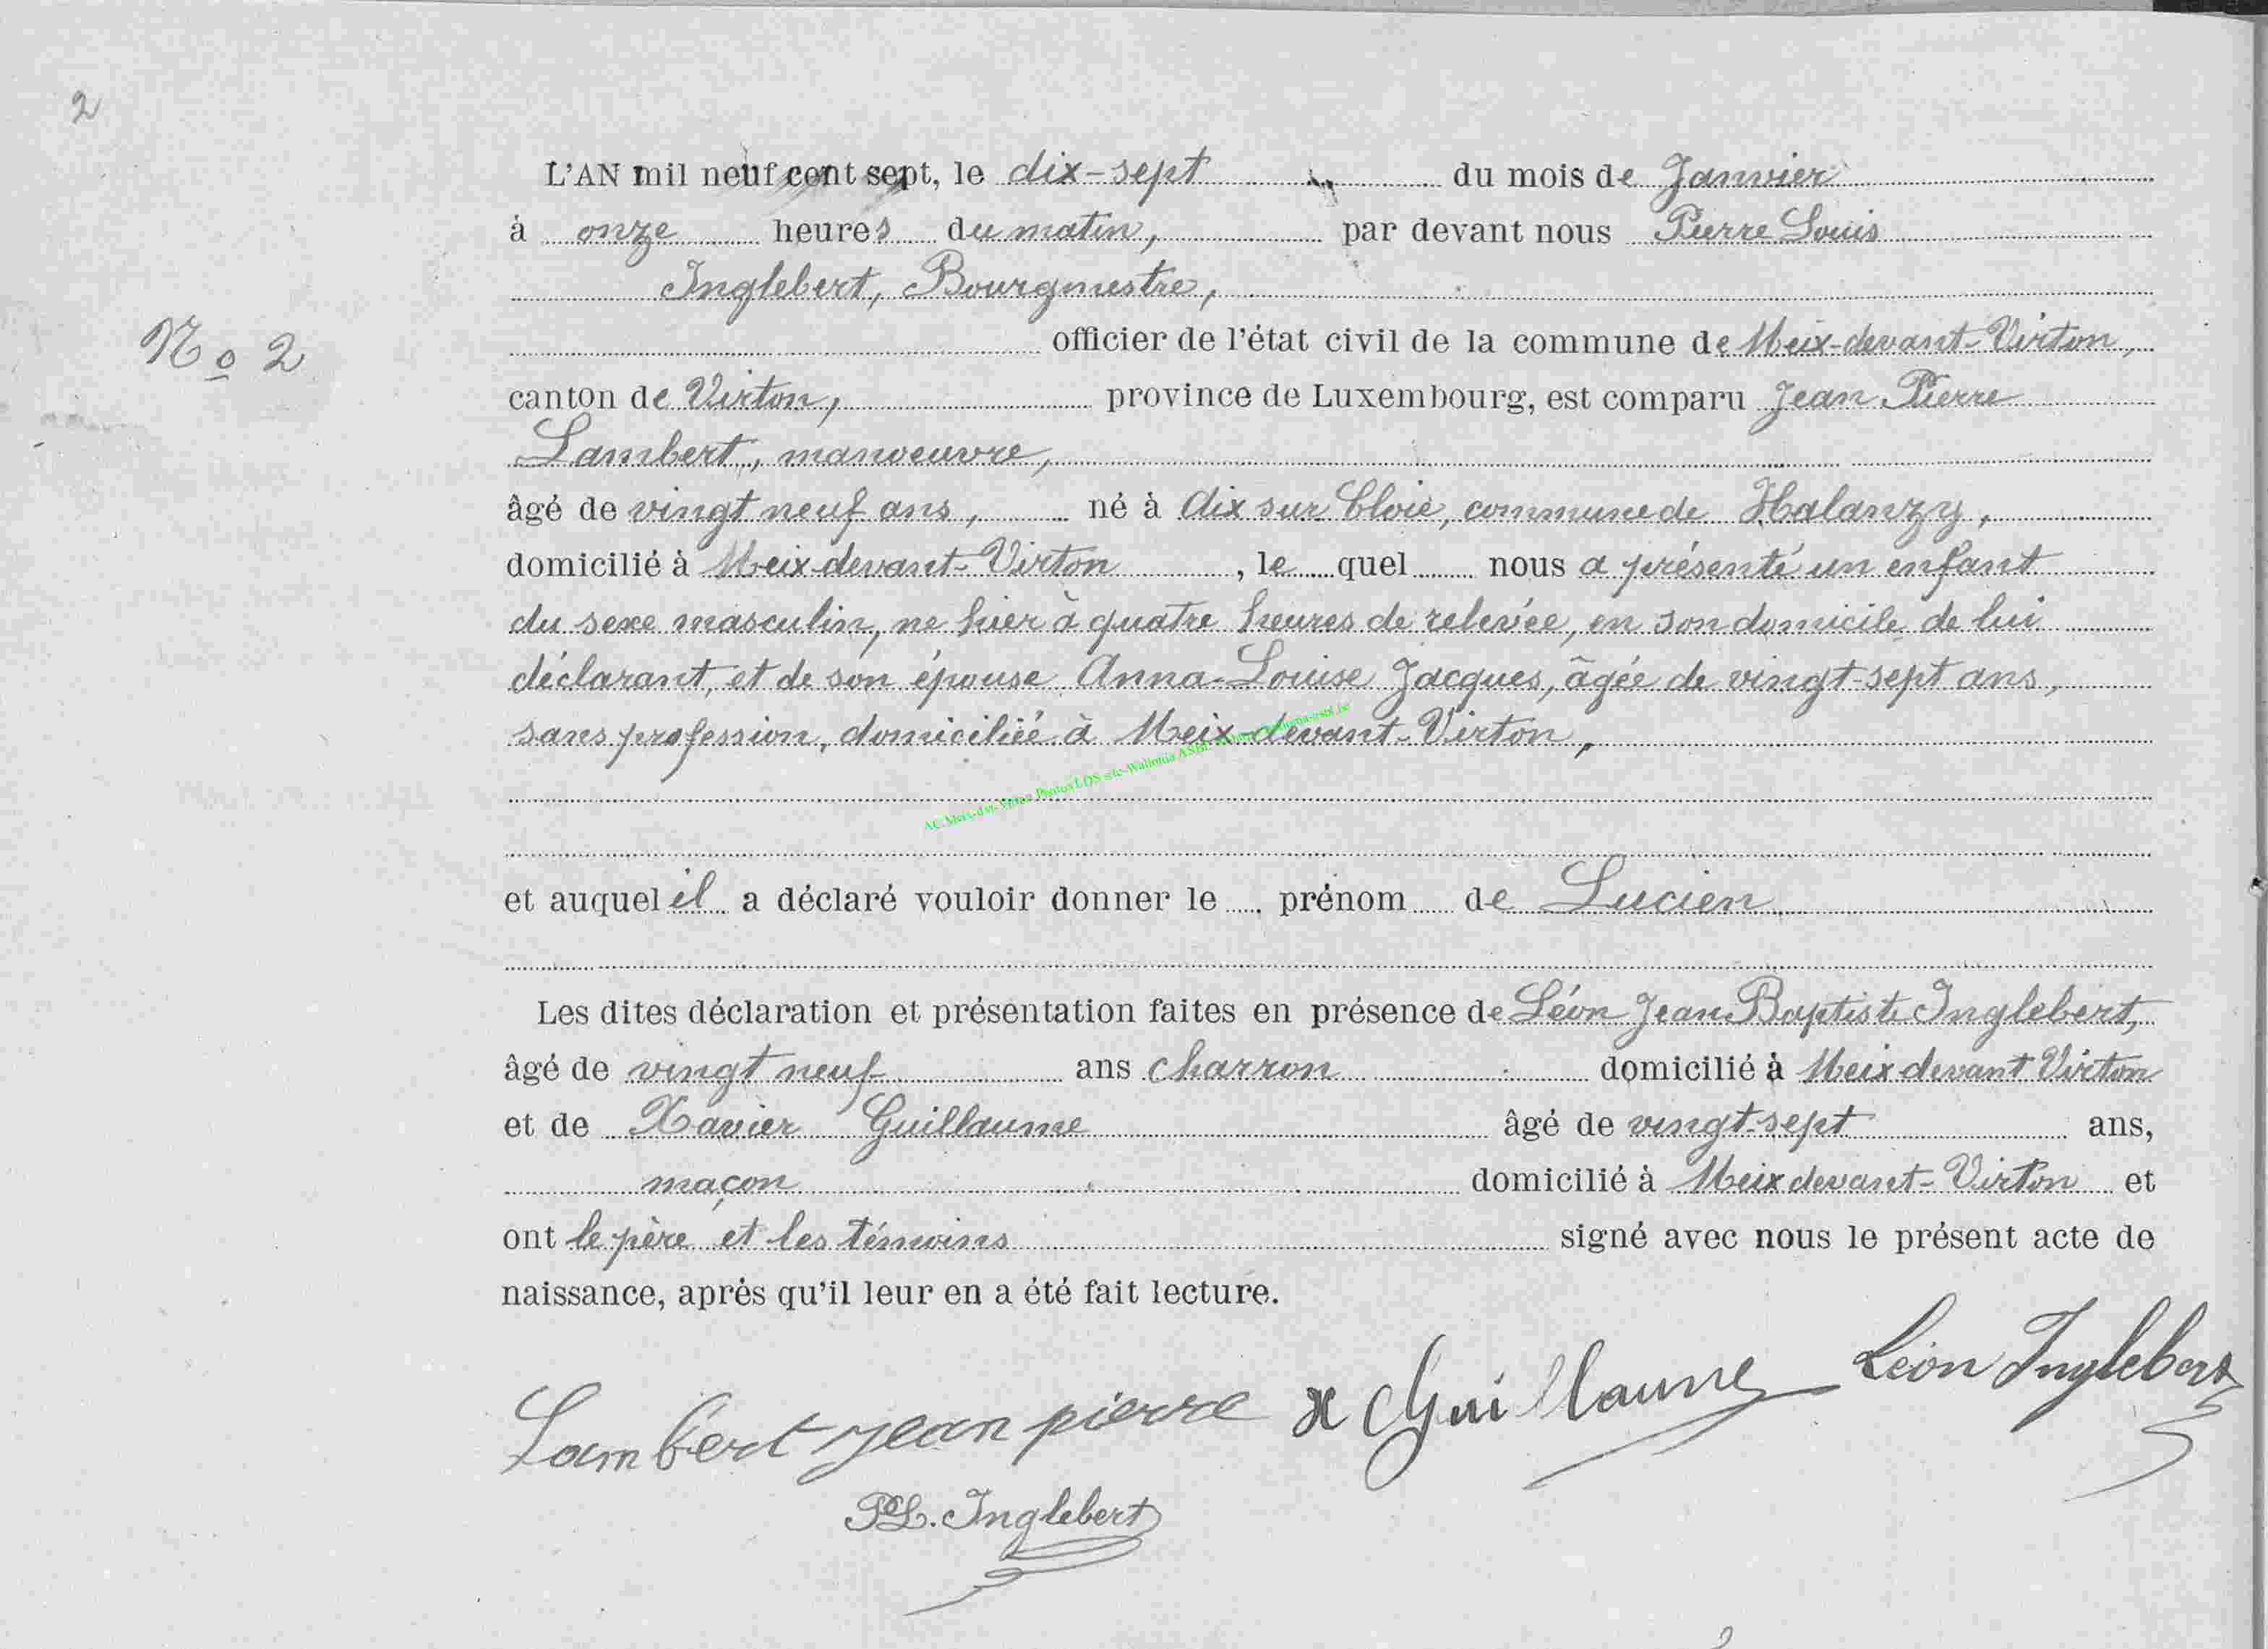 2
L'AN mil neuf cent sept, le dix-sept du mois de Janvier
à onze heures du matin, par devant nous Pierre Louis
Inglebert, Bourgmestre,
officier de l'état civil de la commune de Meix-devant-Virton,
No 2
canton de Virton, province de Luxembourg, est comparu Jean Pierre
Lambert, manoeuvre,
âgé de vingt neuf ans, né à Aix sur Cloie, commune de Halanzy,
domicilié à Meix-devant-Virton, le quel nous a présenté un enfant
du sexe masculin, ne hier à quatre heures de relevée, en son domicile de lui
déclarant, et de son épouse Anna-Louise Jacques, âgée de vingt-sept ans,
sans profession, domiciliée à Meix-devant-Virton,
et auquel il a déclaré vouloir donner le prénom de Lucien
Les dites déclaration et présentation faites en présence de Léon Jean Baptiste Inglebert,
âgé de vingt neuf ans charron domicilié à Meix devant Virton
et de Xavier Guillaume âgé de vingt-sept ans,
maçon domicilié à Meix devant-Virton et
ont le père et les témoins signé avec nous le présent acte de
naissance, après qu'il leur en a été fait lecture.
Lambert jean pierre x Guillaume Léon Inglebert
PL. Inglebert